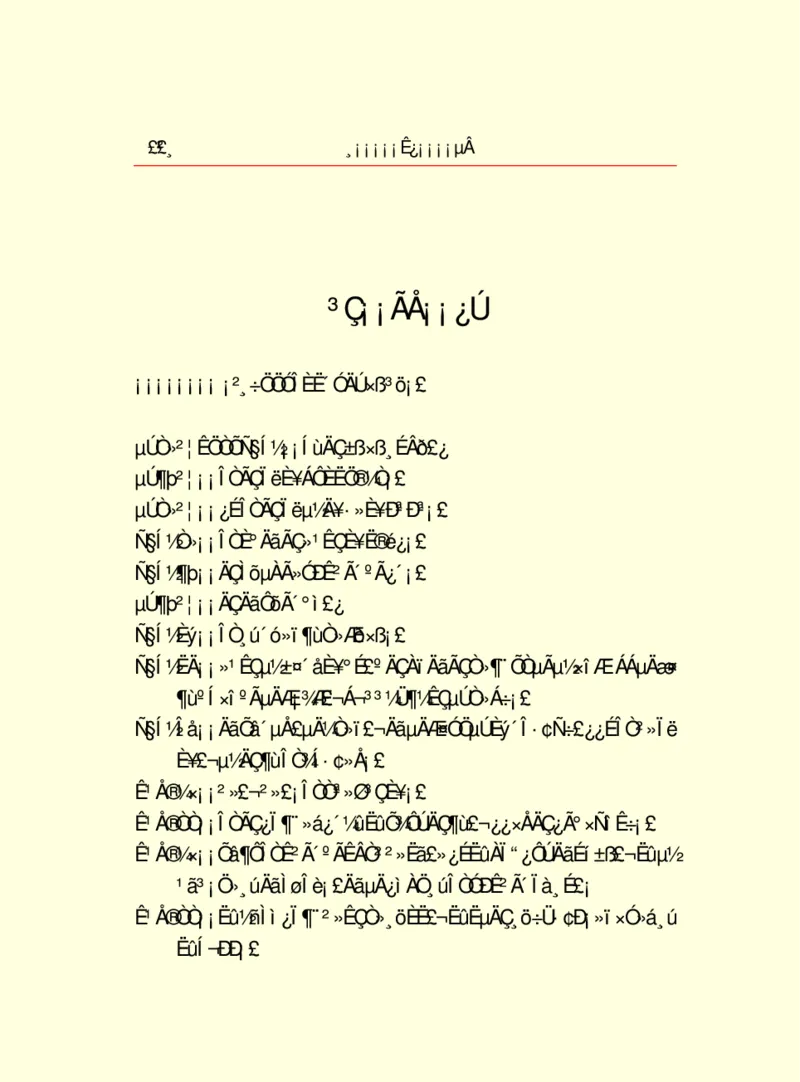 ££¸ ¸¡¡¡¡¡Ê¿¡¡¡¡µÂ
³Ç¡¡ÃÅ¡¡¿Ú
¡¡¡¡¡¡¡¡¡²¸÷ÖÖÓÎÈË´ÓÄÚ×ß³ö¡£
µÚÒ»²¦ÊÖÒÕÑ§Í½¡¡ÍùÄÇ±ß×ß¸ÉÂð£¿
µÚ¶þ²¦¡¡ÎÒÃÇÏëÈ¥ÁÔÈËÖ®¼Ò¡£
µÚÒ»²¦¡¡¿ÉÎÒÃÇÏëµ½Ä¥·»È¥ÐªÐª¡£
Ñ§Í½Ò»¡¡ÎÒÈ°ÄãÃÇ»¹ÊÇÈ¥Ë®é¿¡£
Ñ§Í½¶þ¡¡ÄÇÌõµÀÃ»ÓÐÊ²Ã´ºÃ¿´¡£
µÚ¶þ²¦¡¡ÄÇÄãÔõÃ´°ì£¿
Ñ§Í½Èý¡¡ÎÒ¸ú´ó»ï¶ùÒ»Æð×ß¡£
Ñ§Í½ËÄ¡¡»¹ÊÇµ½±¤´åÈ¥°É£ºÄÇÀïÄãÃÇÒ»¶¨ÕÒµÃµ½×îÆ¯ÁÁµÄæ¤
¶ùºÍ×îºÃµÄÆ¡¾Æ£¬Á¬³³¼Ü¶¼ÊÇµÚÒ»Á÷¡£
Ñ§Í½Îå¡¡ÄãÕâ´µÅ£µÄ¼Ò»ï£¬ÄãµÄÆ¤ÓÖµÚÈý´Î·¢Ñ÷£¿¿ÉÎÒ²»Ïë
È¥£¬µ½ÄÇ¶ùÎÒ¾Í·¢»Å¡£
Ê¹Å®¼×¡¡²»£¬²»£¡ÎÒÒª»Ø³ÇÈ¥¡£
Ê¹Å®ÒÒ¡¡ÎÒÃÇ¿Ï¶¨»á¿´¼ûËûÔ¾ÔÚÄÇ¶ù£¬¿¿×ÅÄÇ¿Ã°×ÑîÊ÷¡£
Ê¹Å®¼×¡¡Õâ¶ÔÎÒÊ²Ã´ºÃÊÂÒ²²»Ëã£»¿ÉËûÀÏ“¿ÔÚÄãÉí±ß£¬Ëûµ½
¹ã³¡Ö»¸úÄãÌøÎè¡£ÄãµÄ¿ìÀÖ¸úÎÒÓÐÊ²Ã´Ïà¸É£¡
Ê¹Å®ÒÒ¡¡Ëû½ñÌì¿Ï¶¨²»ÊÇÒ»¸öÈË£¬ËûËµÄÇ¸ö÷Ü·¢Ð¡»ï×Ó»á¸ú
ËûÍ¬ÐÐ¡£